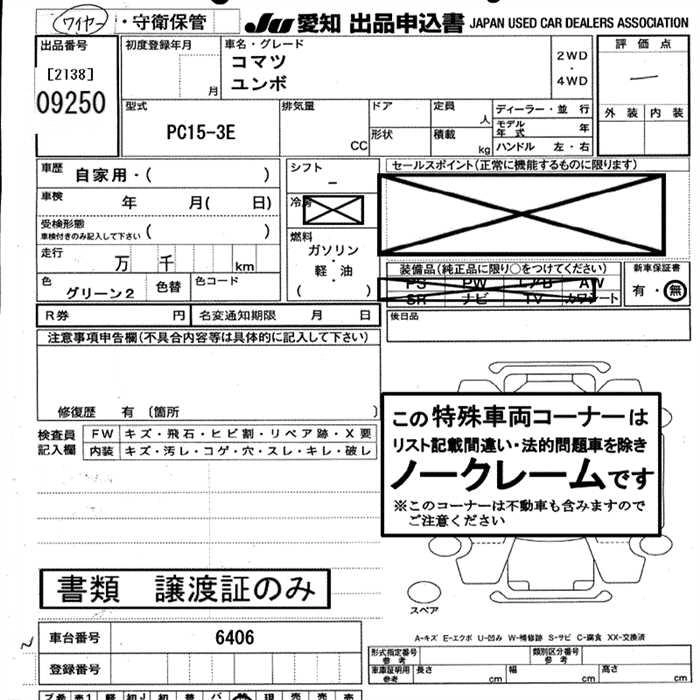 ワイヤー ・守衛保管 JU 愛知 出品申込書 JAPAN USED CAR DEALERS ASSOCIATION
出品番号
[2138]
09250
初度登録年月
月
車名・グレード
コマツ
ユンボ
2WD
・
4WD
評価点
外装 内装
型式
PC15-3E
排気量
CC
ドア
形状
定員
人
積載
kg
ディーラー・並行
モデル年式 年
ハンドル 左・右
車歴 自家用・( )
車検 年 月( 日)
受検形態
車検付きのみ記入して下さい ( )
走行 万 千 km
色 グリーン2 色替 色コード
シフト
ー
冷房
燃料
ガソリン
・
軽・油
( )
セールスポイント(正常に機能するものに限ります)
装備品(純正品に限り○をつけてください)
PS PW エアB AW
SR ナビ TV カワシート
新車保証書
有・無
R券 円 名変通知期限 月 日
後日品
注意事項申告欄(不具合内容等は具体的に記入して下さい)
修復歴 有 〔箇所 〕
検査員
記入欄
FW キズ・飛石・ヒビ割・リペア跡・X要
内装 キズ・汚レ・コゲ・穴・スレ・キレ・破レ
この特殊車両コーナーは
リスト記載間違い・法的問題車を除き
ノークレームです
※このコーナーは不動車も含みますので
ご注意ください
書類 譲渡証のみ
スペア
A-キズ E-エクボ U-凹み W-補修跡 S-サビ C-腐食 XX-交換済
車台番号 6406
登録番号
型式指定番号
参考
類別区分番号
参考
車庫証明用
参考
長さ cm 幅 cm 高さ cm